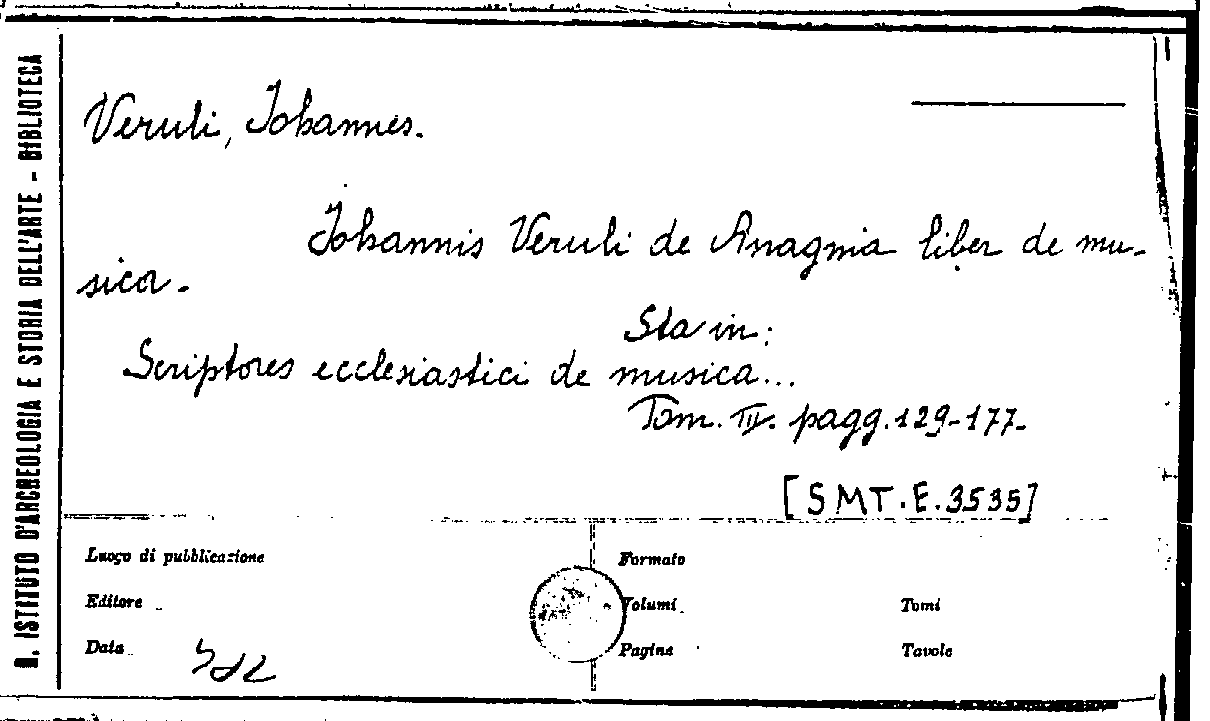 R. ISTITUTO D'ARCHEOLOGIA E STORIA DELL'ARTE - BIBLIOTECA
Veruli, Johannes.
Johannis Veruli de Anagnia liber de mu-
sica.
Sta in:
Scriptores ecclesiastici de musica...
Tom. III. pagg. 129-177.
[SMT.E.3535]
Luogo di pubblicazione
Formato
Editore
Volumi
Tomi
Data
Pagine
Tavole